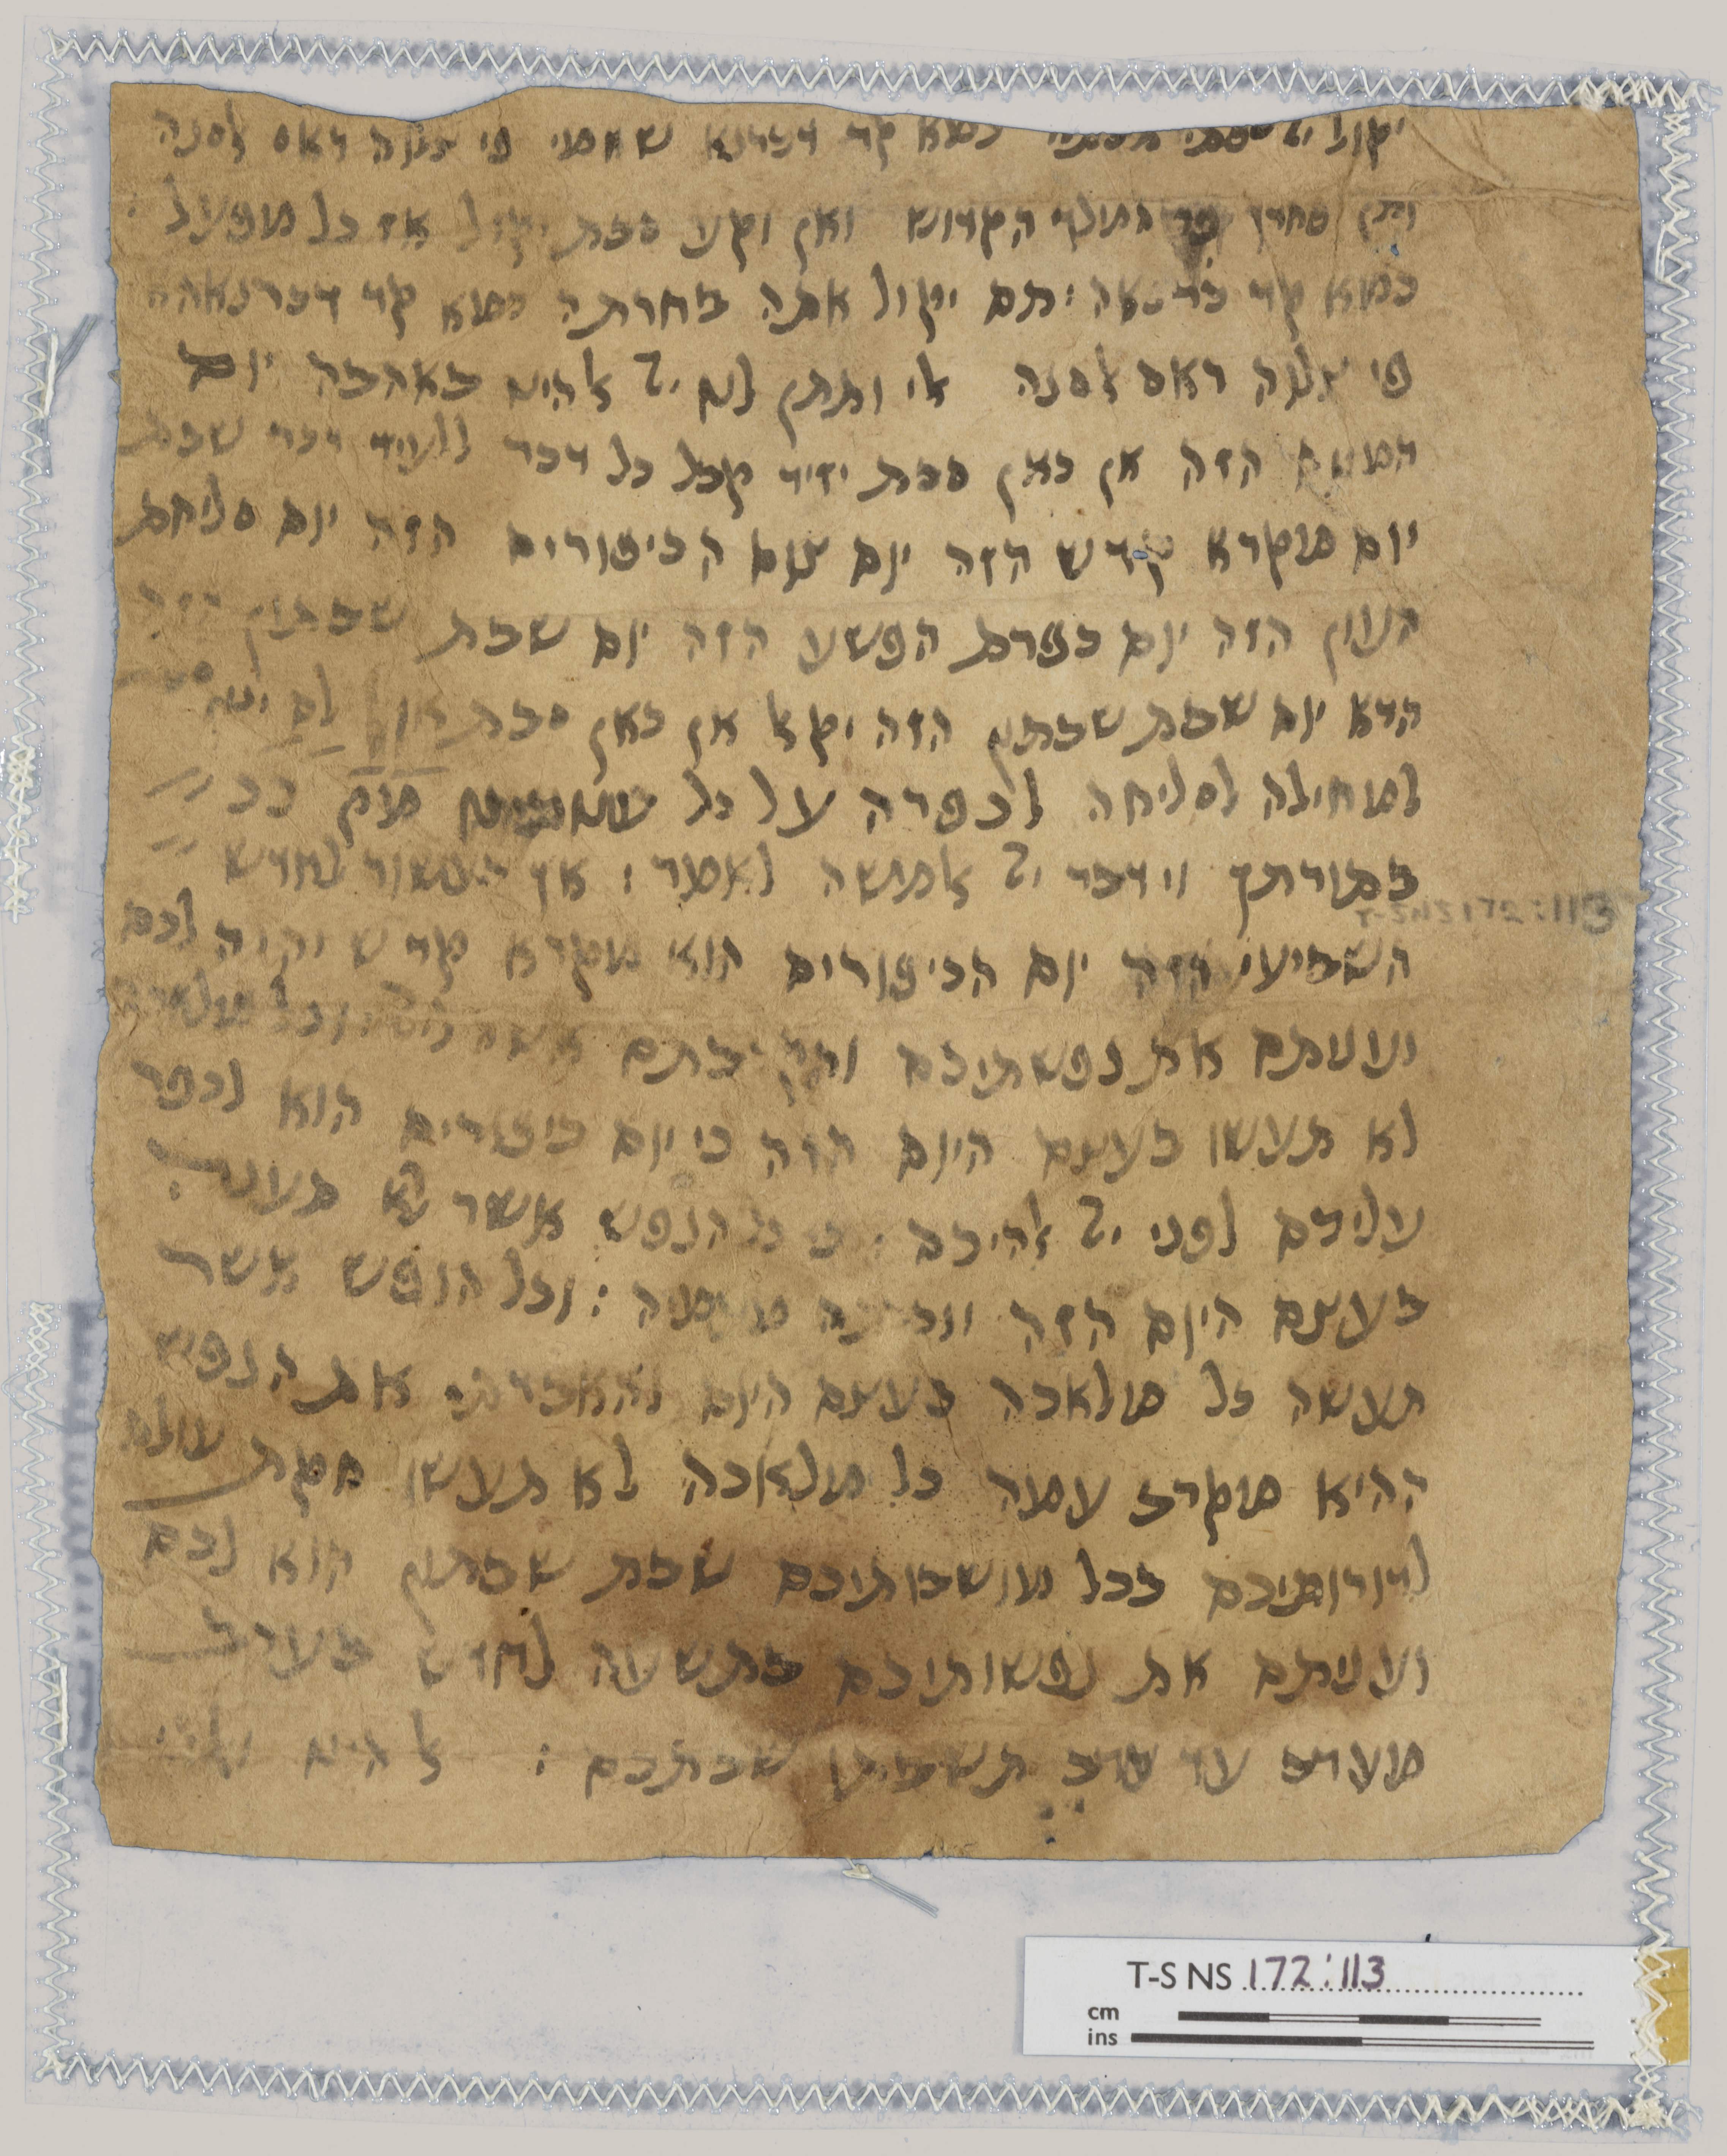 כמא קד דכרנא שחמי פי צלוה ראס לסנה
המלך הקדוש ואן וקע סבת יקול אד כל מפעל :
כמא קד דכרנאה : תם יקול אתה בחרתה כמא קד דכרנאהה
פי צלוה ראס לסנה אי ותתן לנו ייי אלהינו באהבה יום
הצום הזה אן כאן סבת יזיד קבל כל דכר ללעיד דכר שבת
יום מקרא קדש הזה יום צום הכיפורים הזה יום סליחת
העון הזה יום כפרת הפשע הזה יום שבת שבתון הזה
הדא יום שבת שבתון הזה יקאל אן כאן סבת
למחילה לסליחה לכפרה על כל ככ
בתורתך וידבר ייי אל משה לאמר : אך בעשור לחדש
השביעי הזה יום הכיפורים הוא מקרא קדש יהיה לכם
ועניתם את נפשתיכם והקרבתם אשה לייי וכל מלאכה
לא תעשו בעצם היום הזה כי יום כיפורים הוא לכפר
עליכם לפני ייי אלהיכם : כי כל הנפש אשר לא תענה
בעצם היום הזה ונכרתה מעמיה : וכל הנפש אשר
תעשה כל מלאכה בעצם היום והאבדתי את הנפש
ההיא מקרב עמה כל מלאכה לא תעשו חקת עולם
לדורותיכם בכל מושבותיכם שבת שבתון הוא לכם
ועניתם את נפשותיכם בתשעה לחדש בערב
מערב עד ערב תשביתו שבתכם : אלהינו
T-S NS 172:113
T-S NS 172:113
cm
ins